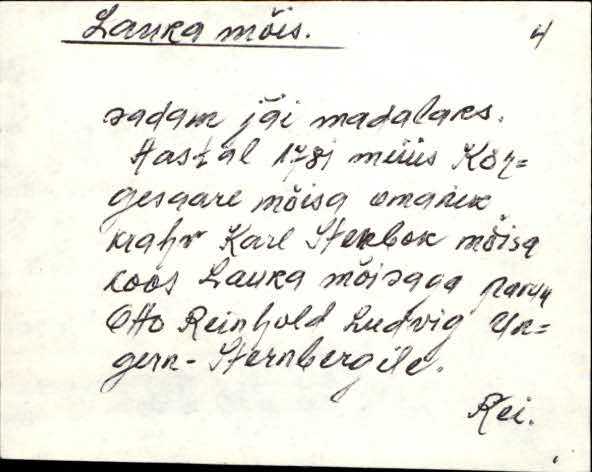 Lauka mõis. 4
sadam jäi madalaks.
Aastal 1781 müüs Kõr=
gesaare mõisa omanik
krahv Karl Stenbok mõisa
koos Lauka mõisaga parun
Otto Reinhold Ludvig Un=
gern-Sternbergile.
Rei.